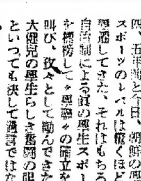 四、五年間と今日、朝鮮の
スポーツのレベルは驚くほど
普通してきた、それはもちろ
自治制による眞の學生スポー
を標榜して〃學聯〃の確立を
叫び、孜々として勵んできた
大健兒の學生らしき奮鬪の記
といつても決して過言ではな